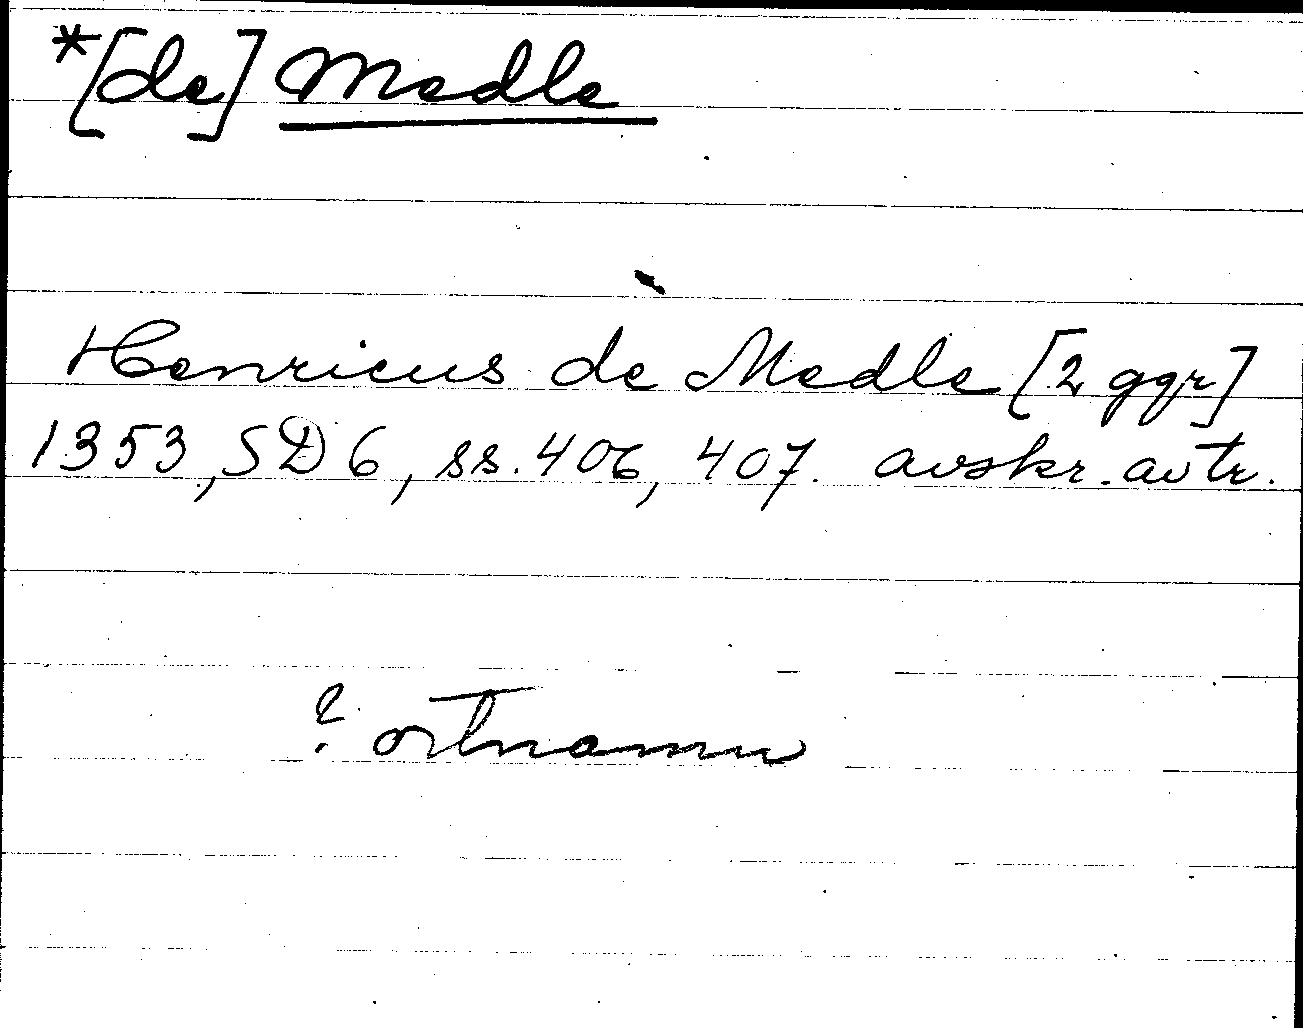 *[de] Medle
Henricus de Medle [2 ggr]
1353, SD 6, ss. 406, 407. avskr. avtr.
? ortnamn